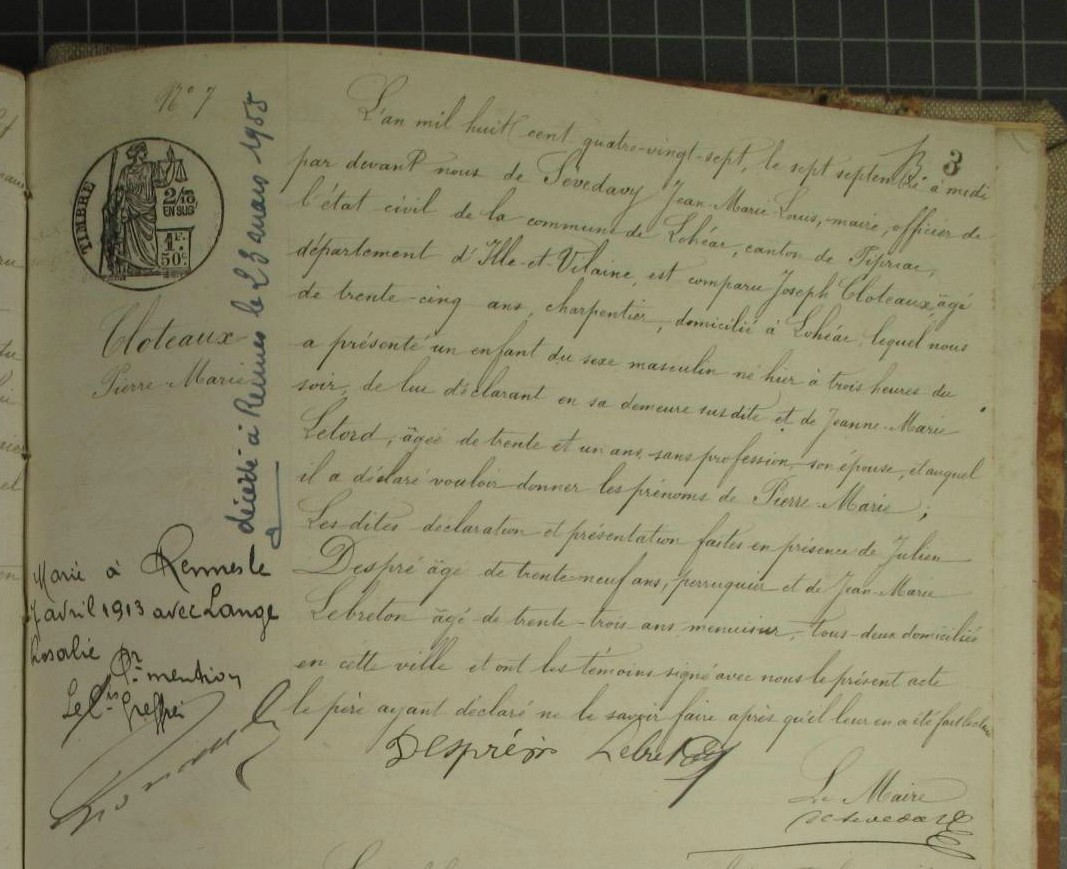 N° 7
3
TIMBRE
2/10
EN SUS
1F.
50c.
Cloteaux
Pierre-Marie
décédé à Rennes le 23 mars 1955
Marié à Rennes le
7 avril 1913 avec Lange
Rosalie
Pr mention
Le Cis Greffier
L'an mil huit cent quatre-vingt-sept, le sept septembre à midi
par devant nous de Sévedavy Jean-Marie Louis, maire, officier de
l'état civil de la commune de Lohéac, canton de Pipriac,
département d'Ille-et-Vilaine, est comparu Joseph Cloteaux, âgé
de trente-cinq ans, charpentier, domicilié à Lohéac, lequel nous
a présenté un enfant du sexe masculin né hier à trois heures du
soir, de lui déclarant en sa demeure susdite et de Jeanne-Marie
Letord, âgée de trente et un ans, sans profession, son épouse, et auquel
il a déclaré vouloir donner les prénoms de Pierre-Marie ;
Les dites déclaration et présentation faites en présence de Julien
Despré âgé de trente-neuf ans, perruquier et de Jean-Marie
Lebreton âgé de trente-trois ans menuisier, tous deux domiciliés
en cette ville et ont les témoins signé avec nous le présent acte
le père ayant déclaré ne le savoir faire après qu'il leur en a été fait lecture
Despré Lebreton
Le Maire